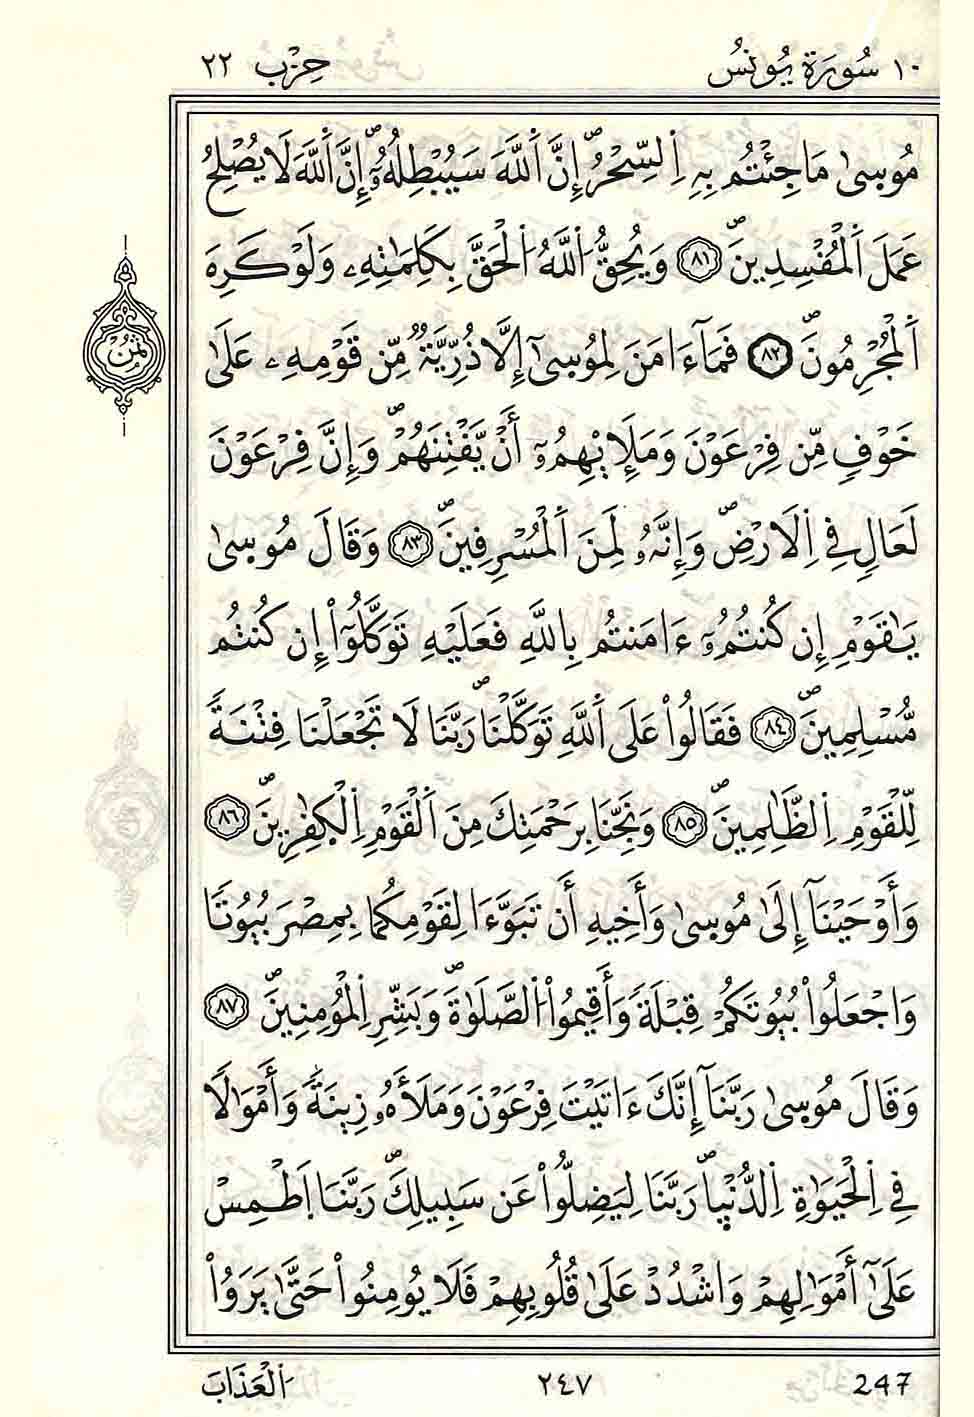 ١٠ سُورَةُ يُونُسَ حِزْب ٢٢
مُوسِىٰ مَا جِئْتُم بِهِ اِ۬لسِّحْرُۖ إِنَّ اَ۬للَّهَ سَيُبْطِلُهُۥٓۖ إِنَّ اَ۬للَّهَ لَا يُصْلِحُ
عَمَلَ اَ۬لْمُفْسِدِينَۖ ٨١ وَيُحِقُّ اُ۬للَّهُ اُ۬لْحَقَّ بِكَلِمَٰتِهِۦ وَلَوْ كَرِهَ
اَ۬لْمُجْرِمُونَۖ ٨٢ فَمَآ ءَامَنَ لِمُوسِىٰٓ إِلَّا ذُرِّيَّةٞ مِّن قَوْمِهِۦ عَلَىٰ
ثُمُن
خَوْفٖ مِّن فِرْعَوْنَ وَمَلَإِيْهِمُۥٓ أَنْ يَّفْتِنَهُمْۖ وَإِنَّ فِرْعَوْنَ
لَعَالٖ فِے اِ۬لَارْضِۖ وَإِنَّهُۥ لَمِنَ اَ۬لْمُسْرِفِينَۖ ٨٣ وَقَالَ مُوسِىٰ
يَٰقَوْمِ إِن كُنتُمُۥٓ ءَامَنتُم بِاللَّهِ فَعَلَيْهِ تَوَكَّلُوٓاْ إِن كُنتُم
مُّسْلِمِينَۖ ٨٤ فَقَالُواْ عَلَى اَ۬للَّهِ تَوَكَّلْنَاۖ رَبَّنَا لَا تَجْعَلْنَا فِتْنَةٗ
لِّلْقَوْمِ اِ۬لظَّٰلِمِينَۖ ٨٥ وَنَجِّنَا بِرَحْمَتِكَ مِنَ اَ۬لْقَوْمِ اِ۬لْكٰفِرِينَۖ ٨٦
وَأَوْحَيْنَآ إِلَىٰ مُوسِىٰ وَأَخِيهِ أَن تَبَوَّءَا لِقَوْمِكُمَا بِمِصْرَ بُيُوتاٗ
وَاجْعَلُواْ بُيُوتَكُمْ قِبْلَةٗ وَأَقِيمُواْ اُ۬لصَّلَوٰةَۖ وَبَشِّرِ اِ۬لْمُومِنِينَۖ ٨٧
وَقَالَ مُوسِىٰ رَبَّنَآ إِنَّكَ ءَاتَيْتَ فِرْعَوْنَ وَمَلَأَهُۥ زِينَةٗ وَأَمْوَٰلاٗ
فِے اِ۬لْحَيَوٰةِ اِ۬لدُّنْيۭاۖ رَبَّنَا لِيَضِلُّواْ عَن سَبِيلِكَۖ رَبَّنَا اَ۪طْمِسْ
عَلَىٰٓ أَمْوَٰلِهِمْ وَاشْدُدْ عَلَىٰ قُلُوبِهِمْ فَلَا يُومِنُواْ حَتَّىٰ يَرَوُاْ
اُ۬لْعَذَابَ ٢٤٧ 247